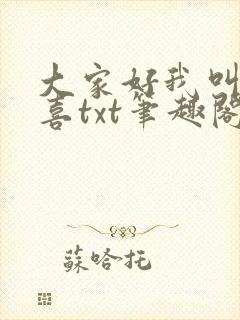 大家好我叫
喜txt笔趣阁
蘇哈托